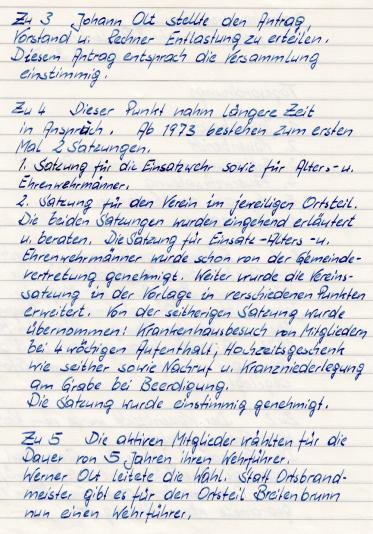 Zu 3 Johann Olt stellte den Antrag,
Vorstand u. Rechner Entlastung zu erteilen.
Diesem Antrag entsprach die Versammlung
einstimmig.
Zu 4 Dieser Punkt nahm längere Zeit
in Anspruch. Ab 1973 bestehen zum ersten
Mal 2 Satzungen.
1. Satzung für die Einsatzwehr sowie für Alters- u.
Ehrenwehrmänner.
2. Satzung für den Verein im jeweiligen Ortsteil.
Die beiden Satzungen wurden eingehend erläutert
u. beraten. Die Satzung für Einsatz-Alters-u.
Ehrenwehrmänner wurde schon von der Gemeinde-
vertretung, genehmigt. Weiter wurde die Vereins-
satzung in der Vorlage in verschiedenen Punkten
erweitert. Von der seitherigen Satzung wurde
übernommen: Krankenhausbesuch von Mitgliedern
bei 4 wöchigen Aufenthalt, Hochzeitsgeschenk
wie seither sowie Nachruf u. Kranzniederlegung
am Grabe bei Beerdigung.
Die Satzung wurde einstimmig genehmigt.
Zu 5 Die aktiven Mitglieder wählten für die
Dauer von 5 Jahren ihren Wehrführer.
Werner Olt leitete die Wahl. Statt Ortsbrand-
meister gibt es für den Ortsteil Breitenbrunn
nun einen Wehrführer.